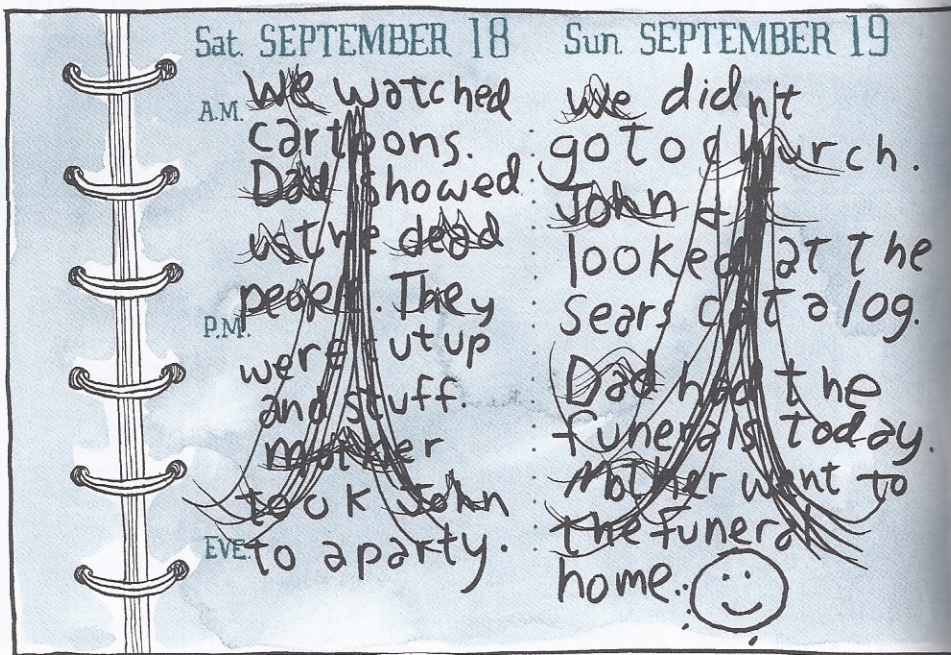 Sat. SEPTEMBER 18
A.M.
We watched
cartoons.
Dad showed
us the dead
people. They
P.M.
were cut up
and stuff.
mother
took John
EVE.
to a party.
Sun. SEPTEMBER 19
We didn't
go to church.
John & I
looked at the
Sears catalog.
Dad had the
funerals today.
Mother went to
the funeral
home.